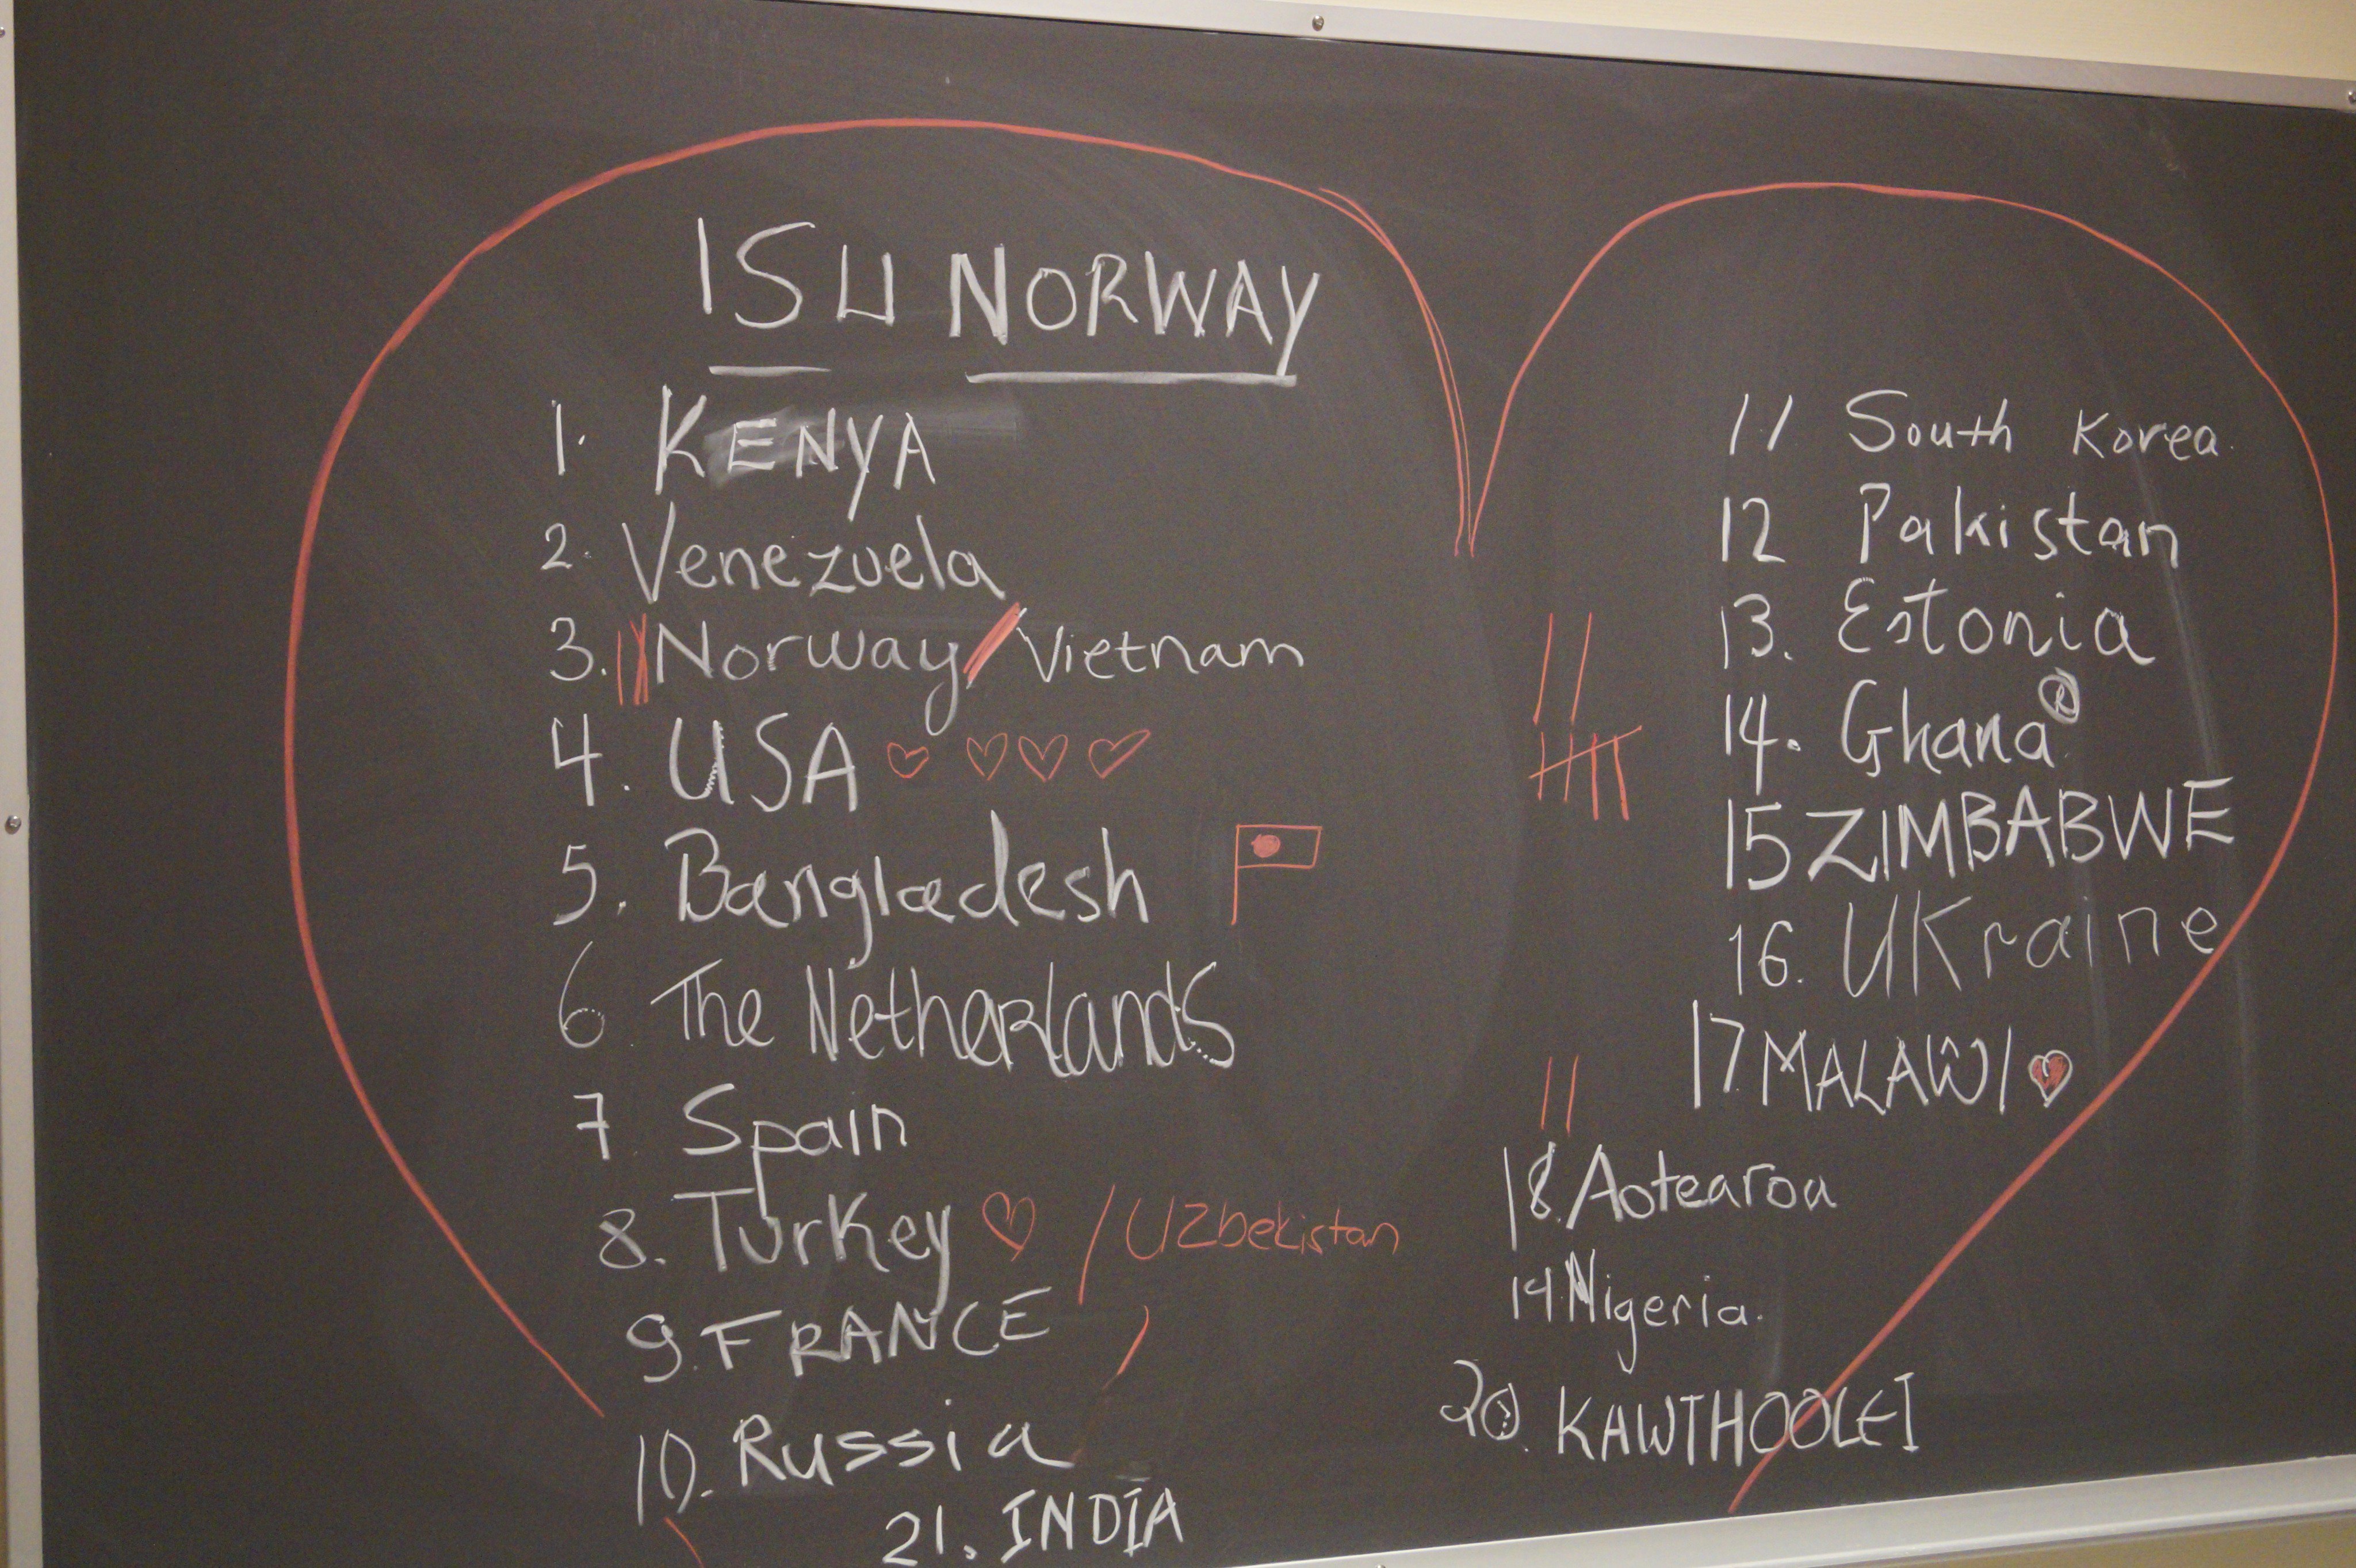 ISU NORWAY
1. KENYA
2. Venezuela
3. Norway/Vietnam
4. USA
5. Bangladesh
6 The Netherlands
7 Spain
8. Turkey / Uzbekistan
9. FRANCE
10. Russia
21. INDIA
11 South Korea
12 Pakistan
13. Estonia
14. Ghana
15 ZIMBABWE
16. UKraine
17 MALAWI
18. Aotearoa
19 Nigeria.
20. KAWTHOOLEI